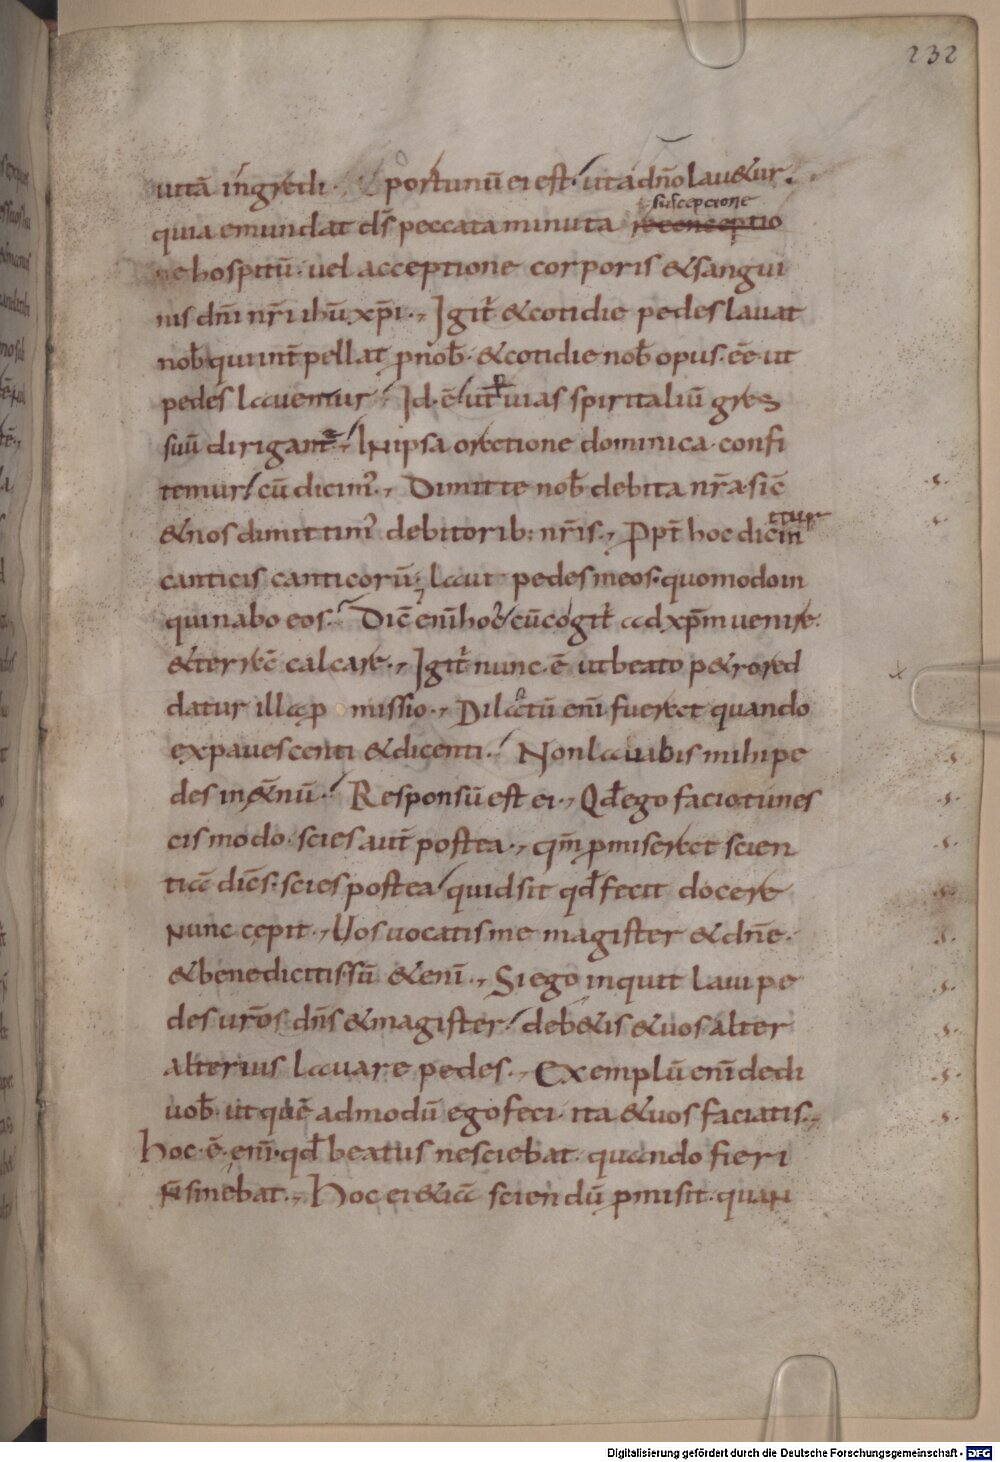 232
uitā ingredi. oportunū ei est. ut a dn̄o lauetur.
susceptione
quia emundat ds̄ peccata minuta reconceptio
ne hospitū. uel acceptione corporis & sangui
nis dn̄i nr̄i ihū xp̄i. Igit̄ & cotidie pedes lauat
nob̄ qui int̄pellat p nob̄. & cotidie nob̄ opus. ēē ut
pedes lauemur. Id. ē ut uias spiritaliū gres
suū dirigam̄. In ipsa oratione dominica confi
temur cū dicim̓. Dimitte nob̄ debita nr̄a sic̄
& nos dimittim̓ debitorib: nr̄is. Ppt̄ hoc dicit̄ in
canticis canticorū. laui pedes meos. quomodo in
quinabo eos. Dic̄ enī hoc cū cogit̄ ad xp̄m uenire.
& terrā calcare. Igit̄ nunc. ē ut beato petro red
datur illa p missio. Dilatū enī fuerat quando
expauescenti & dicenti. Non lauabis mihi pe
des in &nū. Responsū est ei. Qd̄ ego facio tu nes
cis modo. scies aut̄ postea. qm̄ pmiserat scien
tiā dicēs. scies postea quid sit qd̄ feci docere
Nunc cepit. Uos uocatis me magister & dn̄e.
& bene dicitis. sū & enī. Si ego inquit laui pe
des uros dn̄s & magister. deb&is & uos alter
alterius lauare pedes. Exemplū enī dedi
uob̄. ut quē admodū ego feci. ita & uos faciatis.
Hoc. ē. enī. qd̄ beatus nesciebat. quando fieri
n̄ sinebat. Hoc ei & iā sciendū pmisit. quan
Digitalisierung gefördert durch die Deutsche Forschungsgemeinschaft - DFG